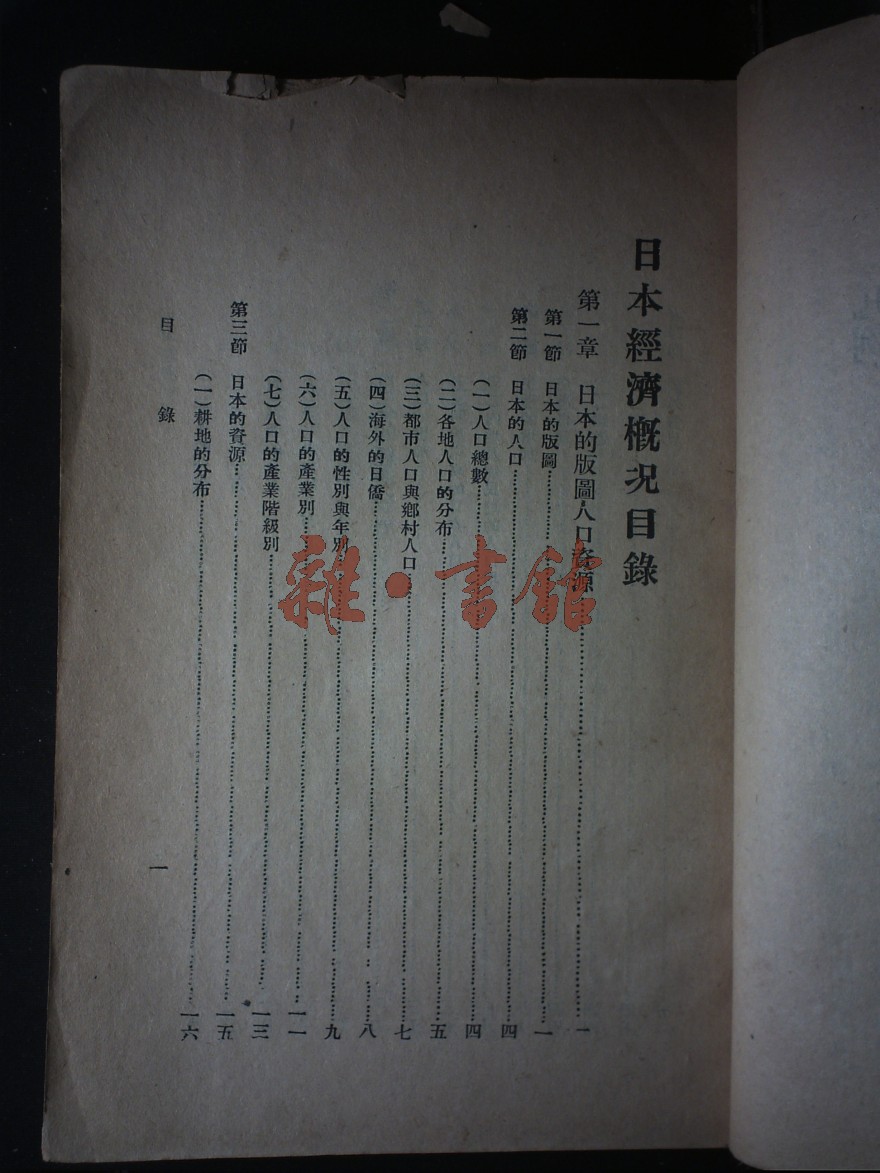 日本經濟概況目錄
第一章 日本的版圖人口資源……一
第一節 日本的版圖……一
第二節 日本的人口……四
(一)人口總數……四
(二)各地人口的分布……五
(三)都市人口與鄉村人口……七
(四)海外的日僑……八
(五)人口的性別與年別……九
(六)人口的產業別……一一
(七)人口的產業階級別……一三
第三節 日本的資源……一五
(一)耕地的分布……一六
目錄
一
雜·書館